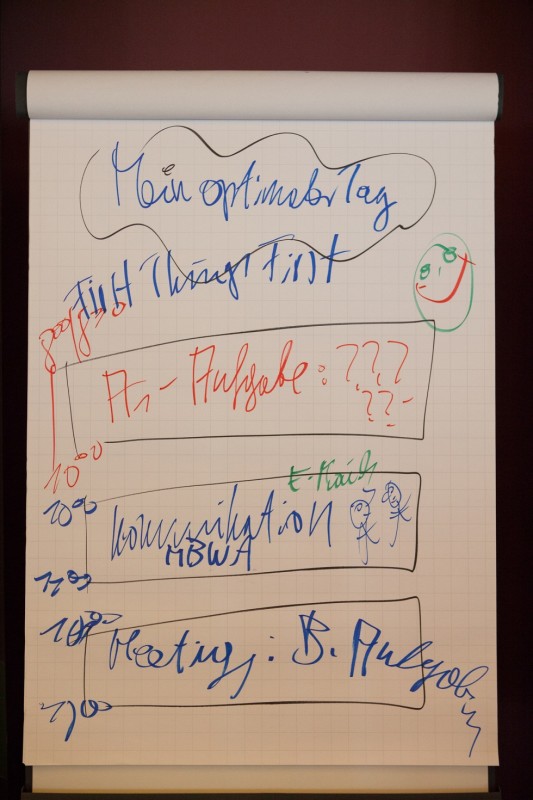 Mein optimaler Tag
First Things First
A1 - Aufgabe: ???
??-
10⁰⁰
E-Mails
10⁰⁰
Kommunikation
MBWA
11⁰⁰
Meeting: B. Aufgaben